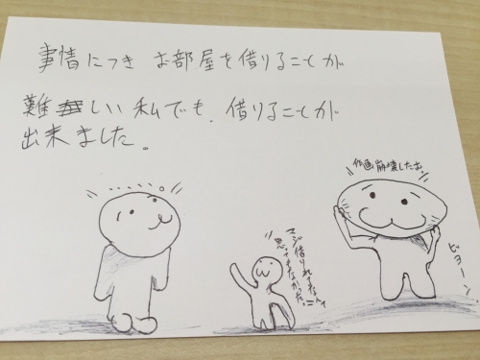 事情につき お部屋を借りることが
難しい私でも、借りることが
出来ました。
作画崩壊したお
マジ借りれるなんて
思ってもなかった。
ビヨーン